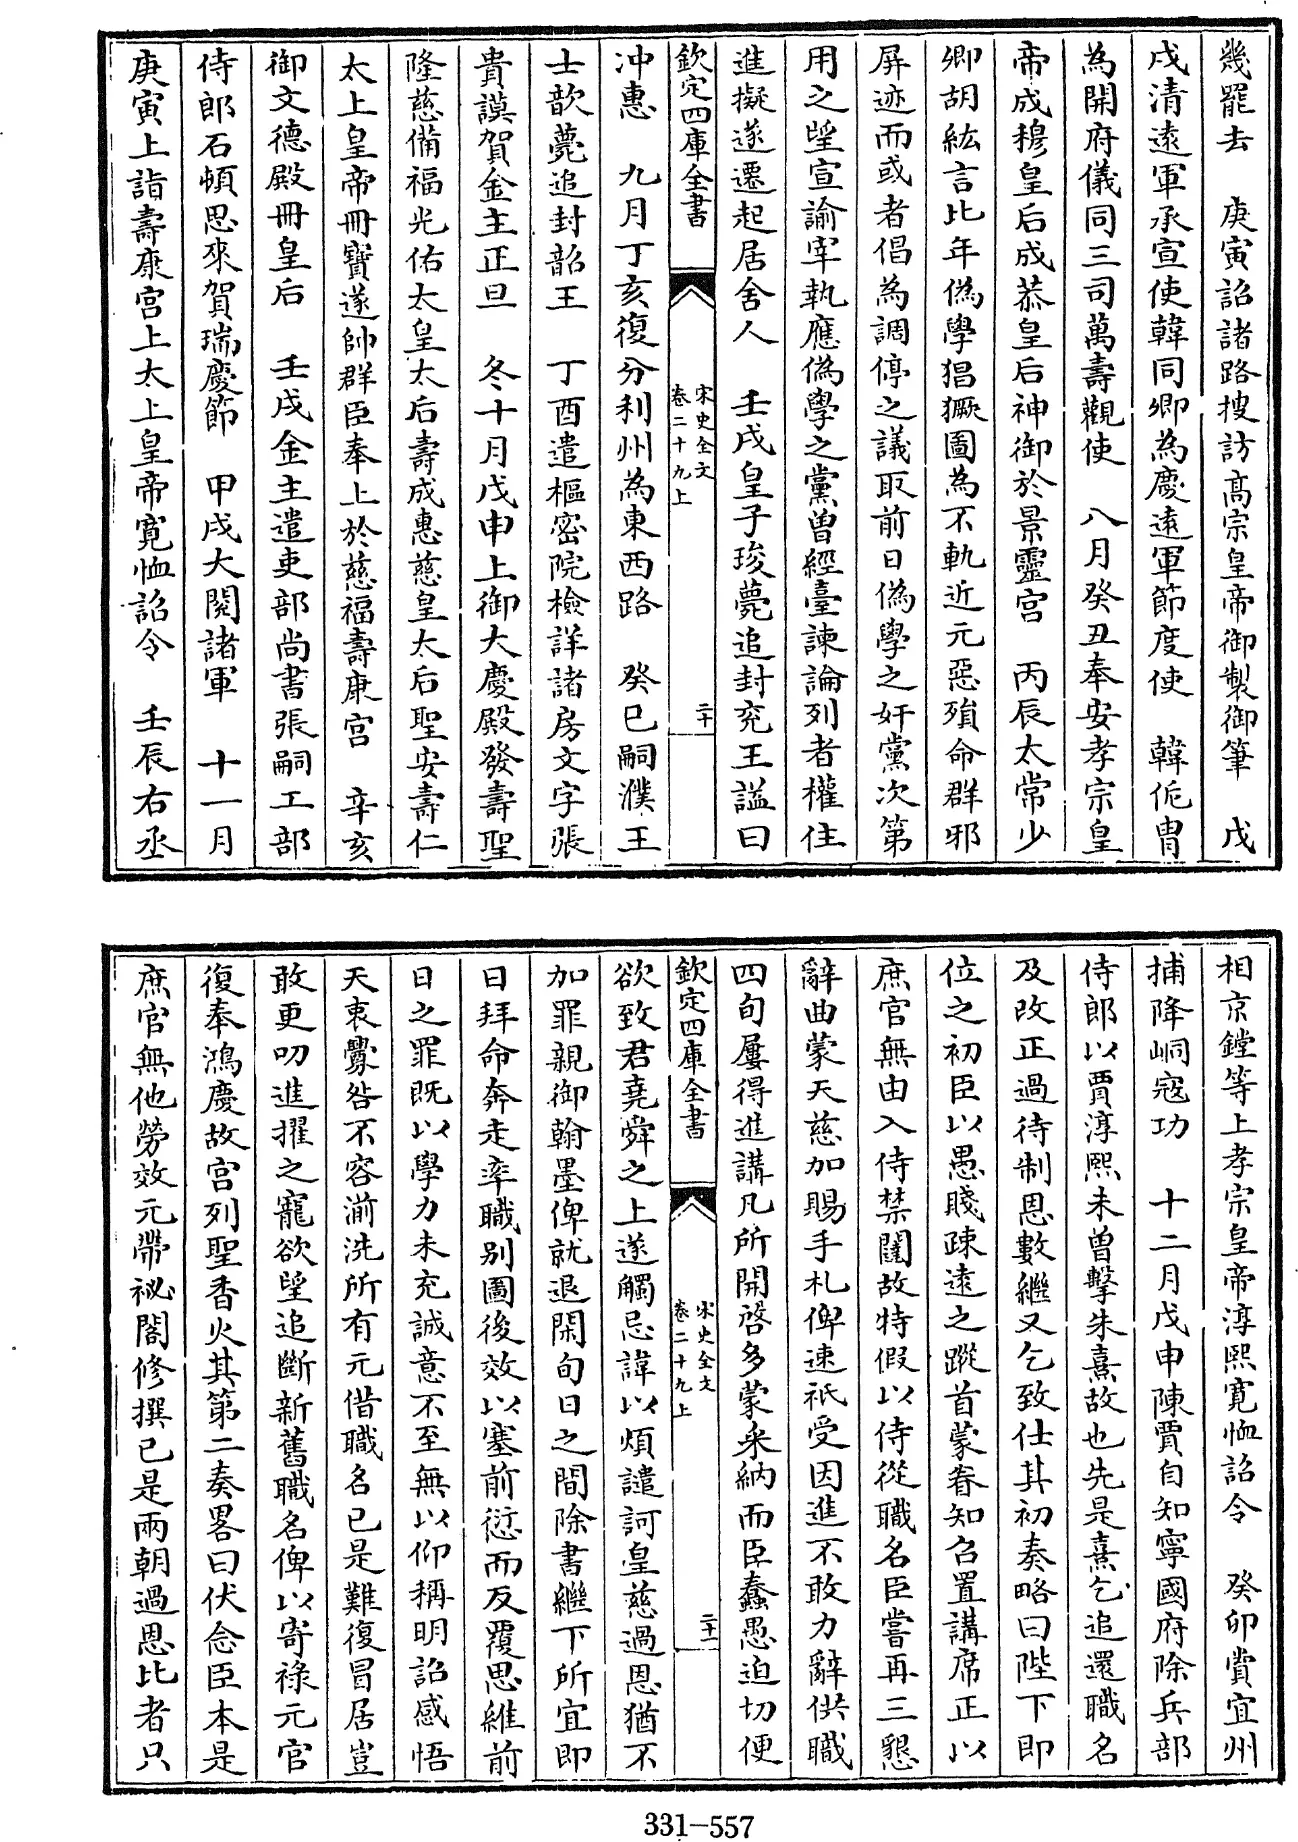 幾罷去　庚寅詔諸路搜訪髙宗皇帝御製御筆　戊
戌清逺軍承宣使韓同卿為慶逺軍節度使　韓侂胄
為開府儀同三司萬壽觀使　八月癸丑奉安孝宗皇
帝成穆皇后成恭皇后神御於景靈宫　丙辰太常少
卿胡紘言比年偽學猖獗圖為不軌近元惡殞命群邪
屏迹而或者倡為調停之議取前日偽學之奸黨次第
用之望宣諭宰執應偽學之黨曽經臺諫論列者權住
進擬遂遷起居舍人　壬戌皇子㻐薨追封兖王諡曰
欽定四庫全書
宋史全文
卷二十九上
二十
冲惠　九月丁亥復分利州為東西路　癸巳嗣濮王
士歆薨追封韶王　丁酉遣樞密院檢詳諸房文字張
貴謨賀金主正旦　冬十月戊申上御大慶殿發壽聖
隆慈備福光佑太皇太后壽成惠慈皇太后聖安壽仁
太上皇帝冊寳遂帥群臣奉上於慈福壽康宫　辛亥
御文德殿冊皇后　壬戌金主遣吏部尚書張嗣工部
侍郎石頓思來賀瑞慶節　甲戌大閱諸軍　十一月
庚寅上詣壽康宫上太上皇帝寛恤詔令　壬辰右丞
相京鏜等上孝宗皇帝淳熙寛恤詔令　癸卯賞宜州
捕降峒冦功　十二月戊申陳賈自知寧國府除兵部
侍郎以賈淳熙未曽擊朱熹故也先是熹乞追還職名
及改正過待制恩數繼又乞致仕其初奏略曰陛下即
位之初臣以愚賤疎逺之蹤首蒙眷知召置講席正以
庶官無由入侍禁闥故特假以侍從職名臣嘗再三懇
辭曲蒙天慈加賜手札俾速祇受因進不敢力辭供職
四旬屢得進講凡所開啓多蒙采納而臣蠢愚迫切便
欽定四庫全書
宋史全文
卷二十九上
二十一
欲致君堯舜之上遂觸忌諱以煩譴訶皇慈過恩猶不
加罪親御翰墨俾就退閑旬日之間除書繼下所宜即
日拜命奔走率職别圖後效以塞前愆而反覆思維前
日之罪既以學力未充誠意不至無以仰稱明詔感悟
天衷釁咎不容湔洗所有元借職名已是難復冒居豈
敢更叨進擢之寵欲望追斷新舊職名俾以寄祿元官
復奉鴻慶故宫列聖香火其第二奏畧曰伏念臣本是
庶官無他勞效元帶祕閣修撰已是兩朝過恩比者只
331-557